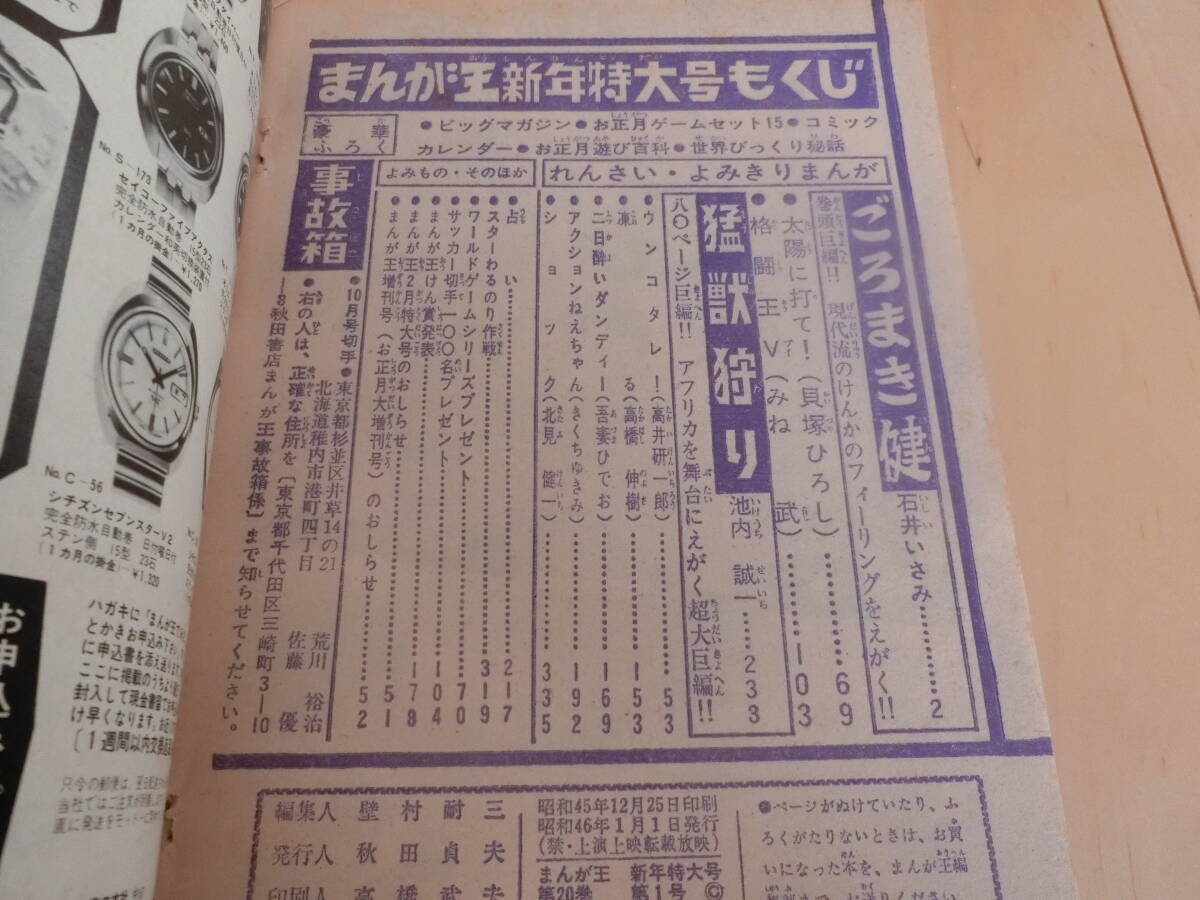 まんが王新年特大号もくじ
豪華ふろく
●ビッグマガジン●お正月ゲームセット15●コミック
カレンダー●お正月遊び百科●世界びっくり秘話
れんさい・よみきりまんが
ごろまき健 石井いさみ……2
巻頭巨編!! 現代流のけんかのフィーリングをえがく!!
太陽に打て!(貝塚ひろし)……69
格闘王V(みね 武)……103
猛獣狩り 池内誠一……233
八〇ページ巨編!! アフリカを舞台にえがく超大巨編!!
ウンコタレ!(高井研一郎)……53
凍る(高橋伸樹)……153
二日酔いダンディー(吾妻ひでお)……169
アクションねえちゃん(きくちゆきみ)……192
ショック(北見健一)……335
よみもの・そのほか
占い……217
スターわるのり作戦……319
ワールドゲームシリーズプレゼント……70
サッカー切手一〇〇名プレゼント……140
まんが王けん賞発表……104
まんが王2月特大号のおしらせ……178
まんが王増刊号(お正月大増刊号)のおしらせ……51
52
事故箱
●10月号切手●東京都杉並区井草14の21 荒川裕治
北海道稚内市港町四丁目 佐藤優
●右の人は、正確な住所を〔東京都千代田区三崎町3―10
―8秋田書店まんが王事故箱係〕まで知らせてください。
編集人 壁村耐三
発行人 秋田貞夫
印刷人 高橋武夫
昭和45年12月25日印刷
昭和46年1月1日発行
(禁・上演上映転載放映)
まんが王 新年特大号
第20巻 第1号 ©
●ページがぬけていたり、ふ
ろくがたりないときは、お買
いになった本を、まんが王編
No.S-173
セイコーファイブアクタス
完全防水自動巻
(1カ月の掛金)…¥1,270
No.C-56
シチズンセブンスターV2
完全防水自動巻 日付曜日付
ステン側 15型 23石
(1カ月の掛金)…¥1,220
お申込
ハガキに「まんが王
とかきお申込み下さい
に申込書を添え送りま
ここに掲載のうちより
封入して現金書留で
け早くなります。お近
(1週間以内交換
只今の郵便は、翌日配達
当社ではご注文が
直に発送をモットーに